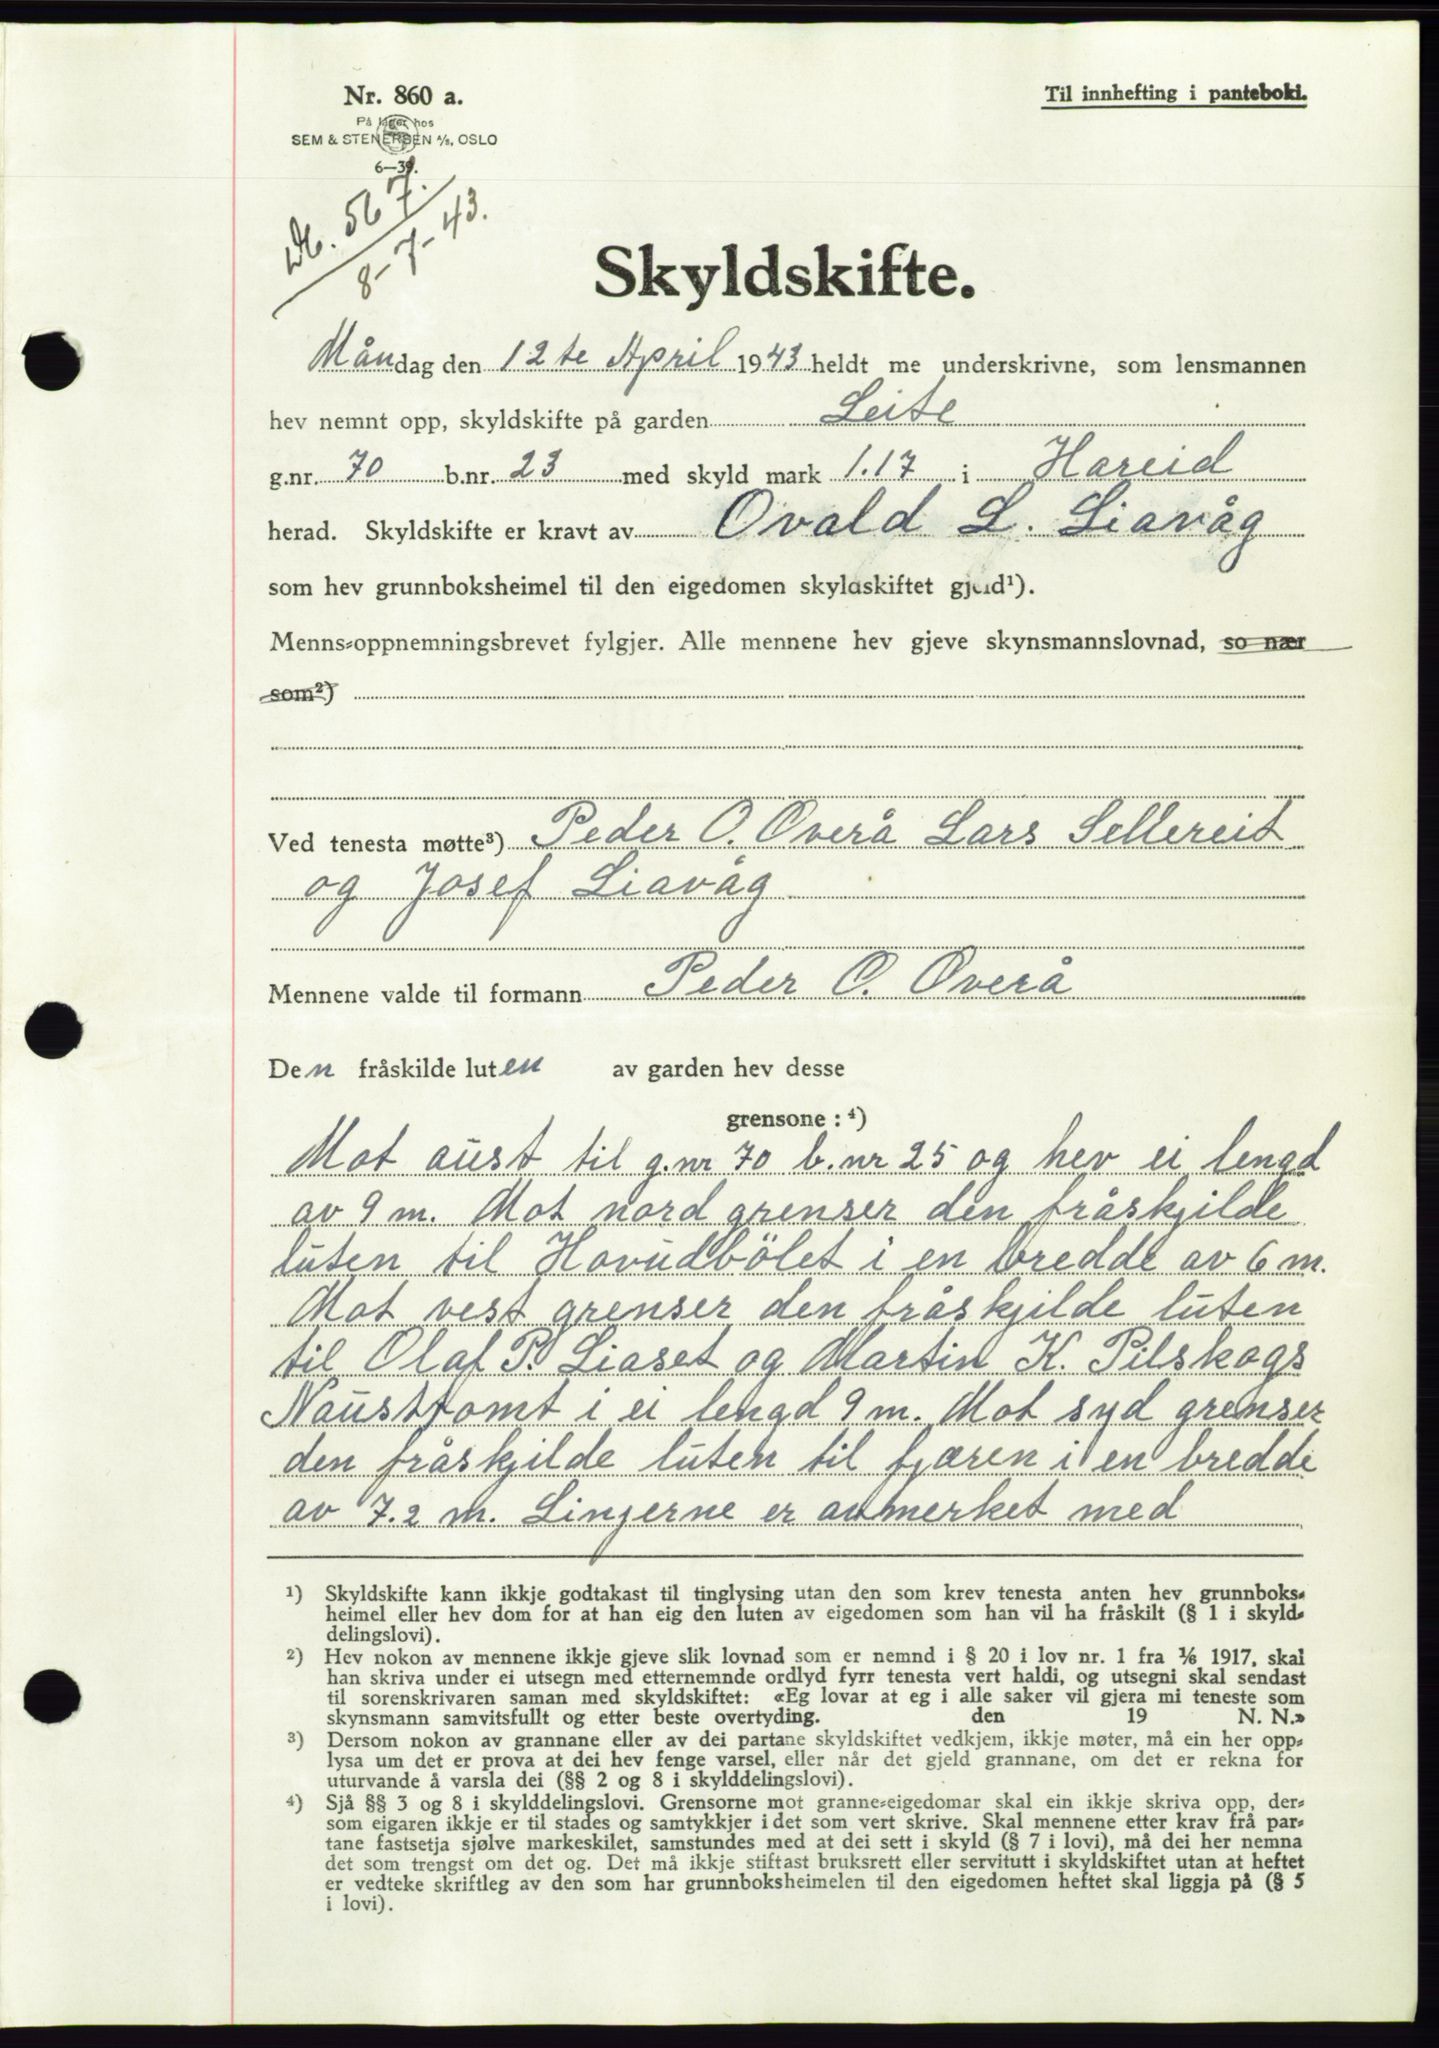 Nr. 860 a.
Til innhefting i panteboki.
På lager hos
SEM & STENERSEN A/S, OSLO
6—39.
Db. 567.
8-7-43.
Skyldskifte.
Måndag den 12te April 1943 heldt me underskrivne, som lensmannen
hev nemnt opp, skyldskifte på garden Leite
g.nr. 70 b.nr. 23 med skyld mark 1.17 i Hareid
herad. Skyldskifte er kravt av Ovald L. Liavåg
som hev grunnboksheimel til den eigedomen skyldskiftet gjeld¹).
Menns-oppnemningsbrevet fylgjer. Alle mennene hev gjeve skynsmannslovnad, so nær
som²)
Ved tenesta møtte³) Peder O. Overå Lars Sellereit
og Josef Liavåg
Mennene valde til formann Peder O. Overå
Den fråskilde luten av garden hev desse
grensone : ⁴)
Mot aust til g.nr 70 b.nr 25 og hev ei lengd
av 9 m. Mot nord grenser den fråskjilde
luten til Hovudbölet i en bredde av 6 m.
Mot vest grenser den fråskjilde luten
til Olaf P. Liaset og Martin K. Pilskogs
Nausttomt i ei lengd 9 m. Mot syd grenser
den fråskjilde luten til fjæren i en bredde
av 7.2 m. Linjerne er avmerket med
1) Skyldskifte kann ikkje godtakast til tinglysing utan den som krev tenesta anten hev grunnboks-
heimel eller hev dom for at han eig den luten av eigedomen som han vil ha fråskilt (§ 1 i skyld-
delingslovi).
2) Hev nokon av mennene ikkje gjeve slik lovnad som er nemnd i § 20 i lov nr. 1 fra 1/6 1917, skal
han skriva under ei utsegn med etternemnde ordlyd fyrr tenesta vert haldi, og utsegni skal sendast
til sorenskrivaren saman med skyldskiftet: «Eg lovar at eg i alle saker vil gjera mi teneste som
skynsmann samvitsfullt og etter beste overtyding. den 19 N. N.»
3) Dersom nokon av grannane eller av dei partane skyldskiftet vedkjem, ikkje møter, må ein her opp-
lysa um det er prova at dei hev fenge varsel, eller når det gjeld grannane, om det er rekna for
uturvande å varsla dei (§§ 2 og 8 i skylddelingslovi).
4) Sjå §§ 3 og 8 i skylddelingslovi. Grensorne mot granne-eigedomar skal ein ikkje skriva opp, der-
som eigaren ikkje er til stades og samtykkjer i det som vert skrive. Skal mennene etter krav frå par-
tane fastsetja sjølve markeskilet, samstundes med at dei sett i skyld (§ 7 i lovi), må dei her nemna
det som trengst om det og. Det må ikkje stiftast bruksrett eller servitutt i skyldskiftet utan at heftet
er vedteke skriftleg av den som har grunnboksheimelen til den eigedomen heftet skal liggja på (§ 5
i lovi).